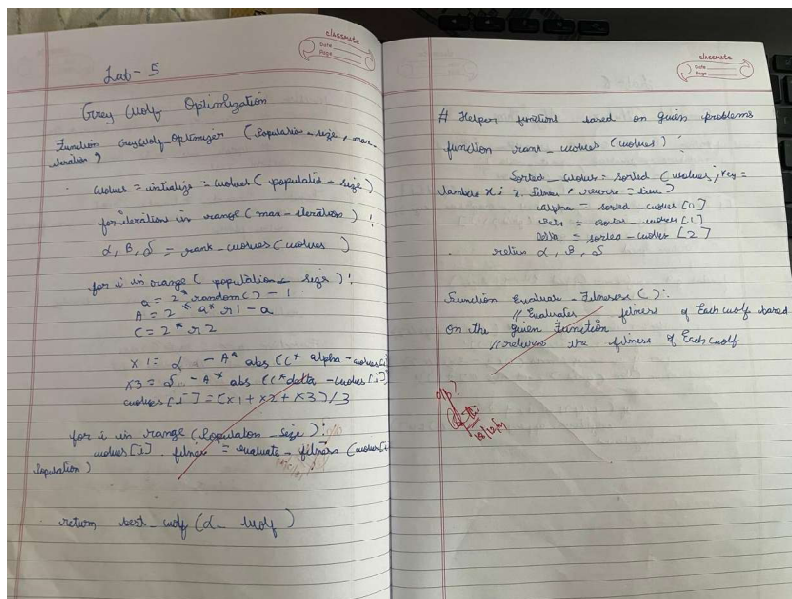 classmate
Date
Page
Lab - 5
Grey Wolf Optimization
Function GreyWolf_Optimizer (Population - size, max_
iteration)
wolves = initialize - wolves ( population - size )
for iteration in range ( max - iteration ) :
α, B, δ = rank - wolves (wolves )
for i in range ( population size ) :
a = 2 * random() - 1
A = 2 * a * r1 - a
C = 2 * r2
x1 = α - A * abs (C * alpha - wolves [i]
x3 = δ - A * abs (C * delta - wolves [i]
wolves [i] = (x1 + x2 + x3) / 3
for i in range (Population _ size ) :
wolves [i] . fitness = evaluate - fitness (wolves [i]
Population )
return best _ wolf (α _ wolf )
classmate
Date
Page
# Helper function based on given problems
function rank _ wolves (wolves) :
Sorted _ wolves = sorted ( wolves , key =
lambda x : x. fitness , reverse = True )
alpha = sorted wolves [0]
= sorted _ wolves [1]
Delta = sorted - wolves [2]
return α, B, δ
Function Evaluate - Fitness ( ) :
// Evaluates fitness of Each wolf based
On the given function
// returns the fitness of Each wolf
o/p